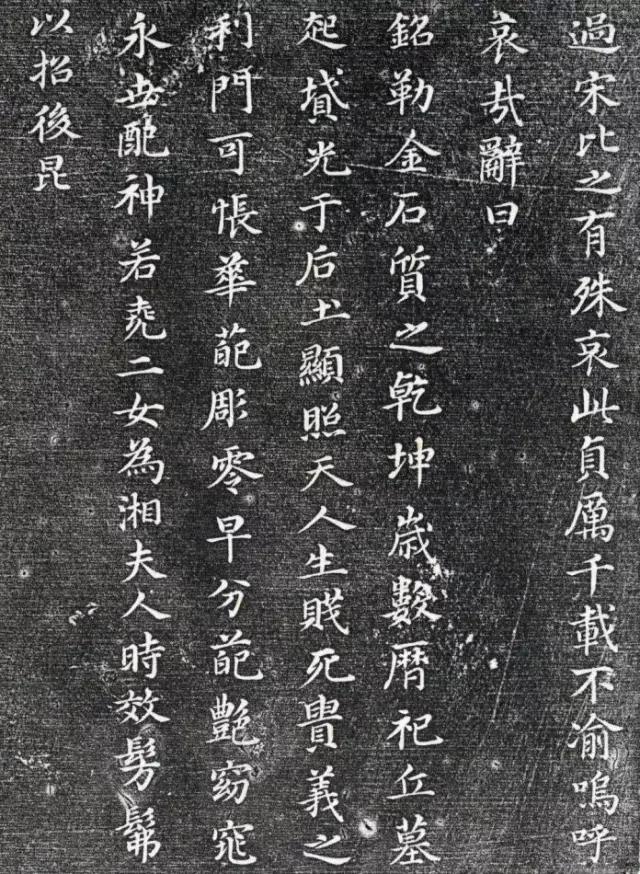 過宋比之有殊哀此貞厲千載不渝嗚呼
哀哉辭曰
銘勒金石質之乾坤歲數曆祀丘墓
起墳光于后土顯照天人生賤死貴義之
利門可悵華葩彫零早分葩艷窈窕
永世配神若堯二女為湘夫人時效髣髴
以招後昆